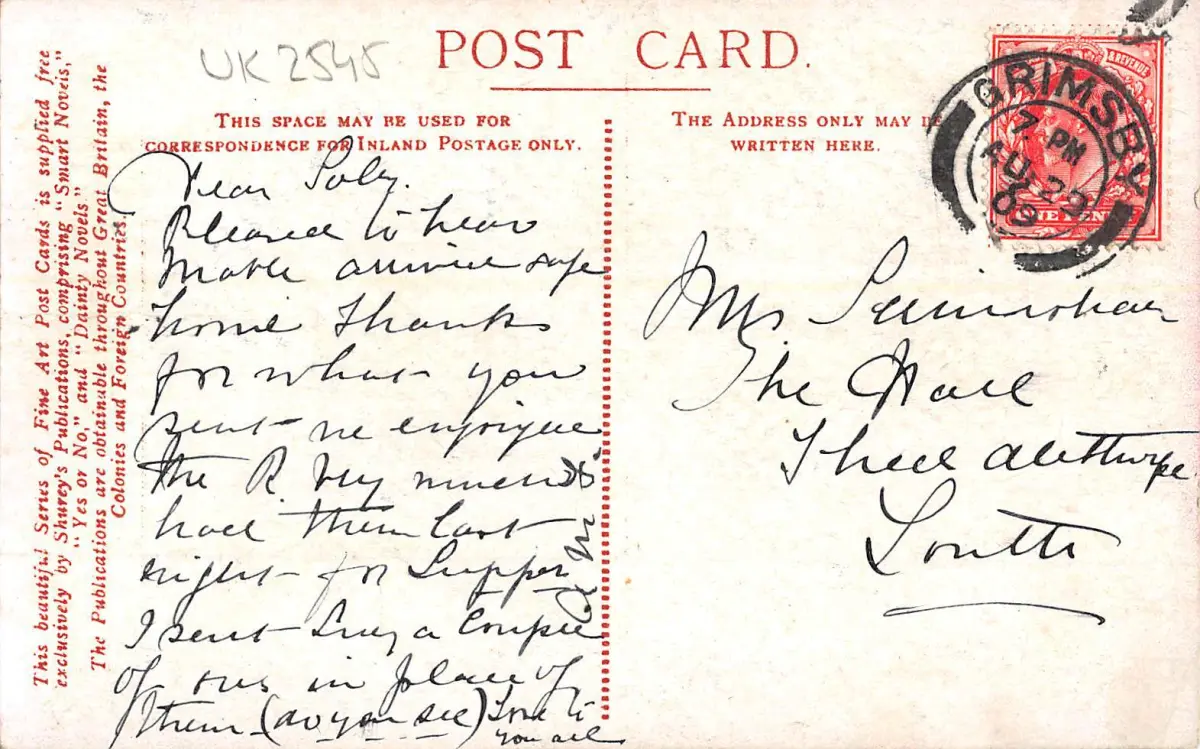 UK 2545
POST CARD.
THIS SPACE MAY BE USED FOR
CORRESPONDENCE FOR INLAND POSTAGE ONLY.
THE ADDRESS ONLY MAY BE
WRITTEN HERE.
This beautiful Series of Fine Art Post Cards is supplied free
exclusively by Shurey's Publications, comprising "Smart Novels,"
"Yes or No," and "Dainty Novels"
The Publications are obtainable throughout Great Britain, the
Colonies and Foreign Countries.
& REVENUE
ONE PENNY
GRIMSBY
7. PM
AU 22
09
Dear
Pleased to hear
arrived safe
home Thanks
for what you
sent we enjoyed
the R. very much
had them last
night for Supper
I sent Lucy a Couple
of ours in place of
them (do you see) Love to
you all
Mrs
The Hall
Louth